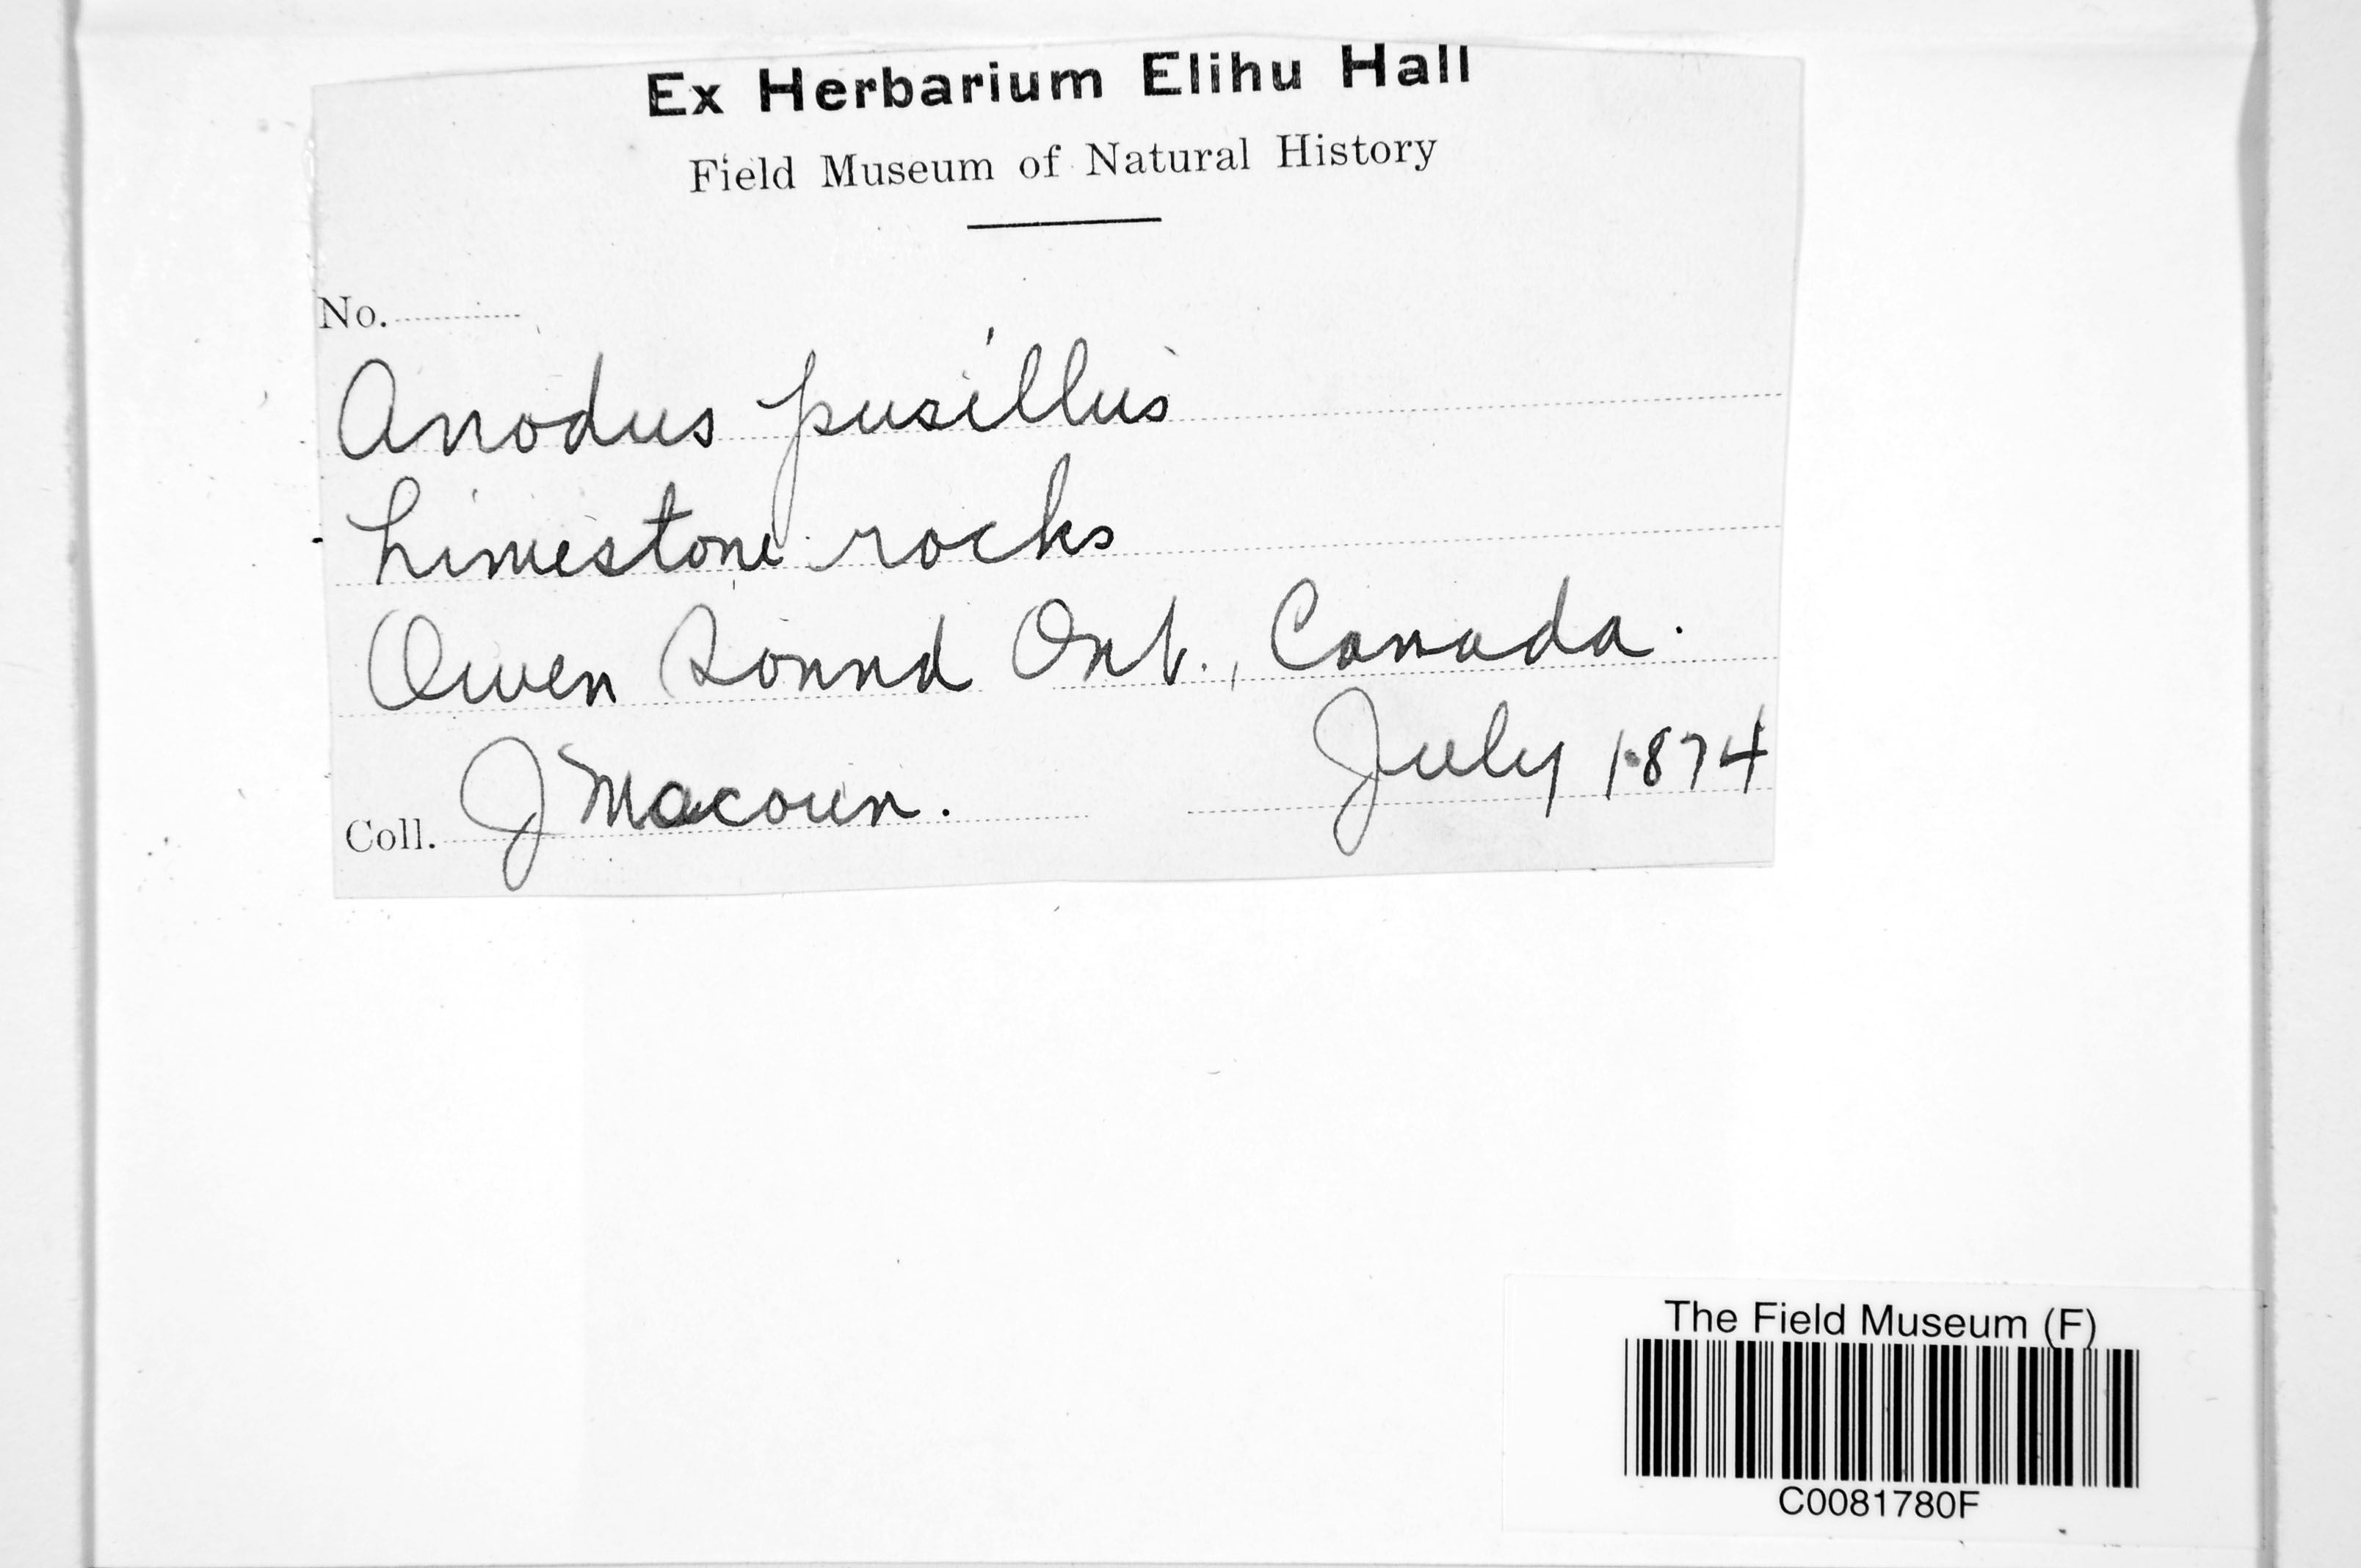 Ex Herbarium Elihu Hall
Field Museum of Natural History
No.
Anodus pusillus
Limestone rocks
Owen Sound Ont., Canada.
Coll. J Macoun. July 1874
The Field Museum (F)
C0081780F